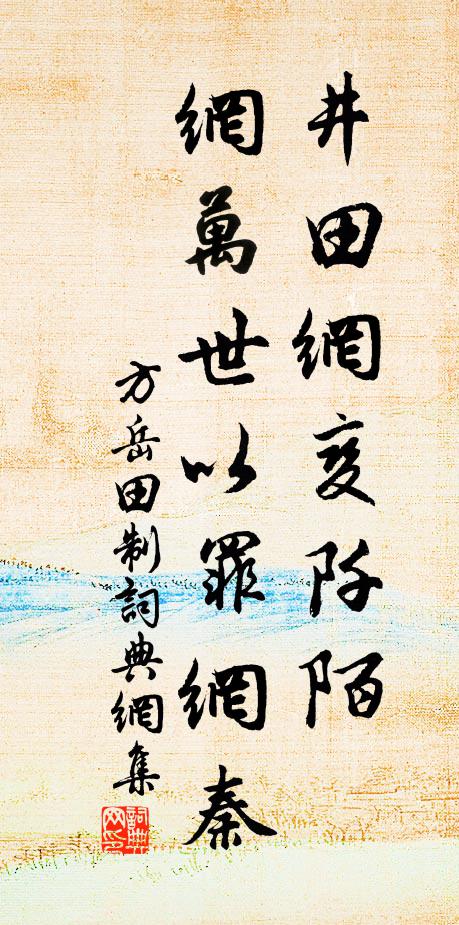 井田網变阡陌
網萬世以罪網秦
方岳田制詞典網集
詞典网印